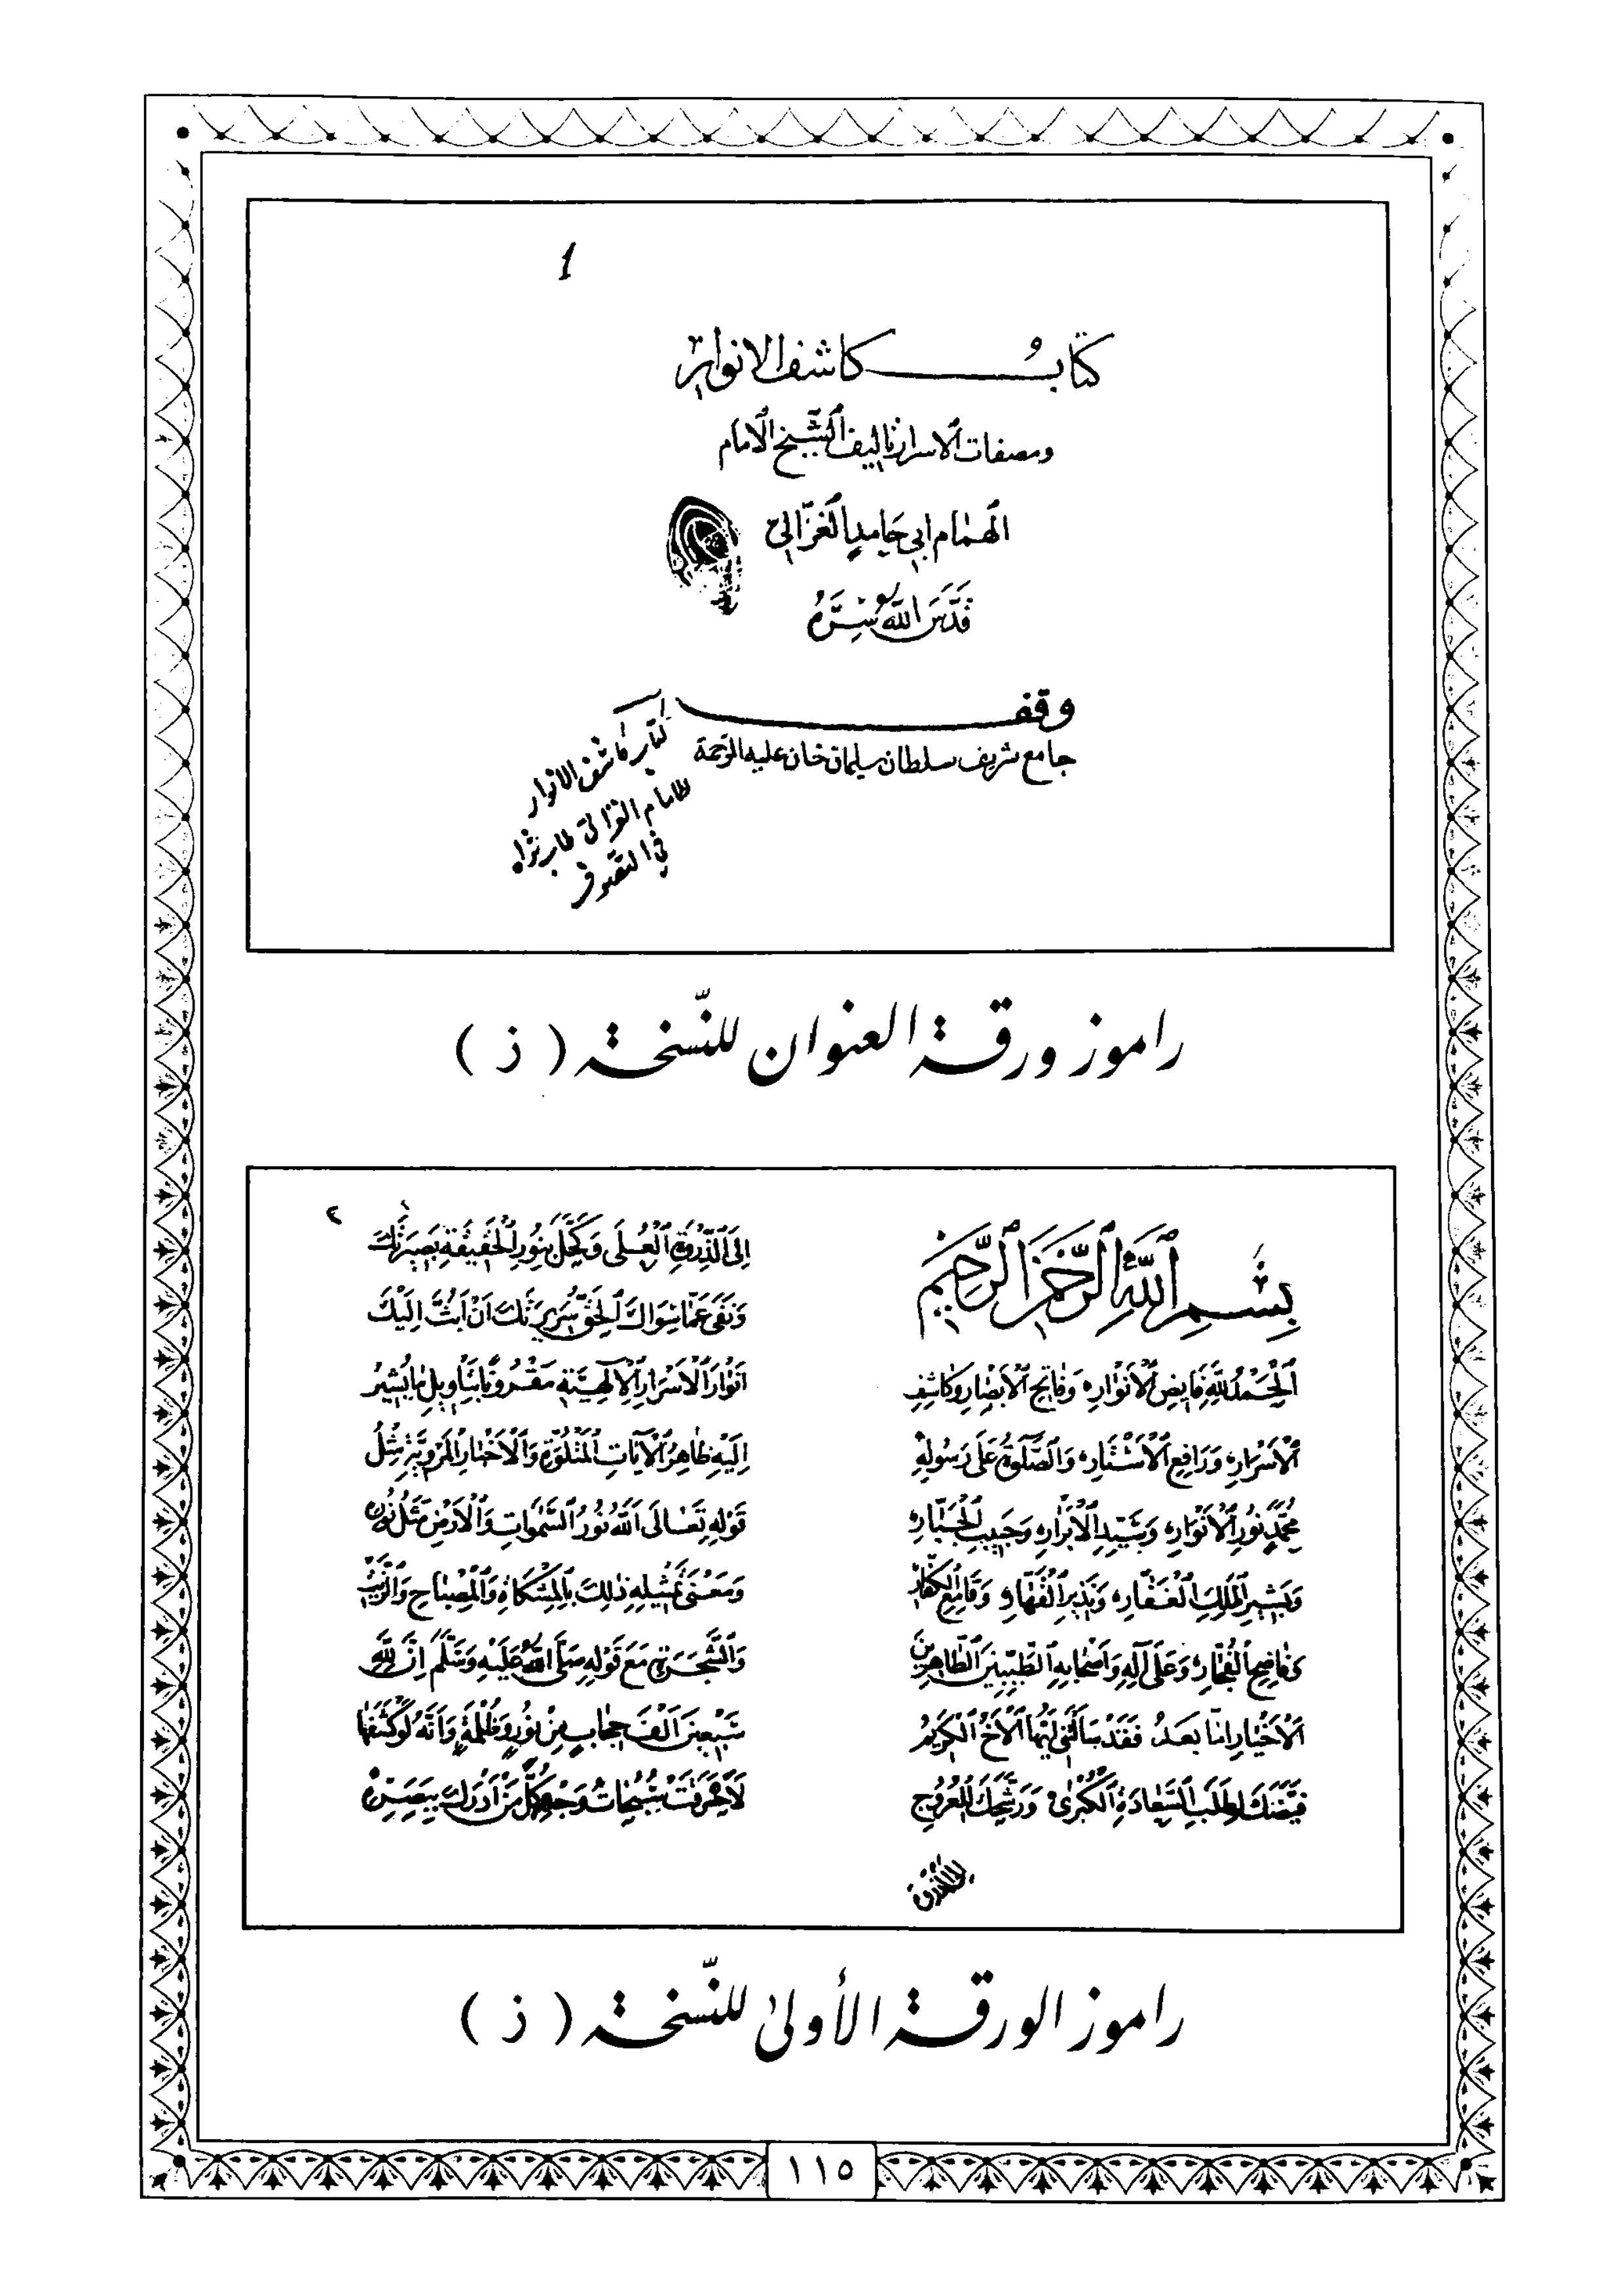 1
كتابُ كاشف الانوار
ومصفات الاسرار تاليف الشيخ الامام
الهمام ابي حامد الغزالي
قدس الله سره
وقف
جامع شريف سلطان سليمان خان عليه الرحمة
كتاب كاشف الانوار
للامام الغزالي طاب ثراه
في التصوف
راموز ورقة العنوان للنسخة ( ذ )
بسم الله الرحمن الرحيم
الحمد لله فايض الانوار وفاتح الابصار وكاشف
الاسرار ورافع الاستار والصلوة على رسوله
محمد نور الانوار وسيد الابرار وحبيب الجبار
وبشير الملك الغفار ونذير القهار وقامع الكفار
وفاضح الفجار وعلى آله واصحابه الطيبين الطاهرين
الاخيار اما بعد فقد سالتني ايها الاخ الكريم
قيضك لطلب السعادة الكبرى ورشحك للعروج
الى الذروة
٢
الى الذروة العلى وكحل بنور الحقيقة بصيرتك
ونقى عما سواك الحق سريرتك ان ابث اليك
انوار الاسرار الالهية مقرونا بتاويل ما يشير
اليه ظاهر الآيات المتلوة والاخبار المروية مثل
قوله تعالى الله نور السموات والارض مثل نوره
ومعنى تمثيله ذلك بالمشكاة والمصباح والزيت
والشجرة مع قوله صلى الله عليه وسلم ان لله
سبعين الف حجاب من نور وظلمة وانه لو كشفها
لاحرقت سبحات وجهه كل من ادرك ببصره
راموز الورقة الأولى للنسخة ( ذ )
١١٥